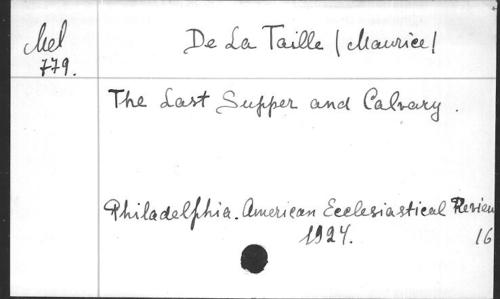 Mel
779.
De La Taille (Maurice)
The Last Supper and Calvary.
Philadelphia. American Ecclesiastical Review
1924.
16